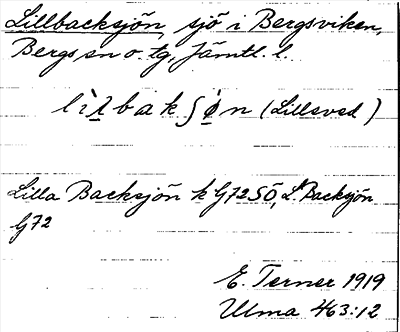 Lillbacksjön, sjö i Bergsviken,
Bergs sn o. tg, Jämtl. l.
lìl̥bakʃø̣n (Lillsved)
Lilla Backsjön k G72SÖ, L. Backsjön
G72
E. Terner 1919
Ulma 463:12